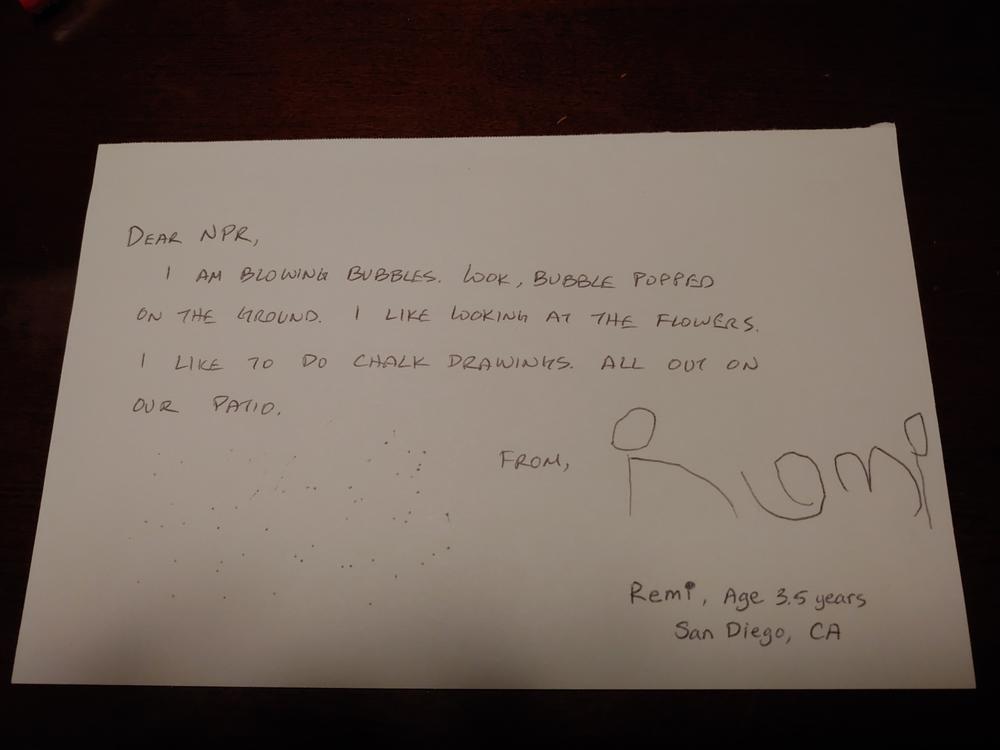 DEAR NPR,
I AM BLOWING BUBBLES. LOOK, BUBBLE POPPED
ON THE GROUND. I LIKE LOOKING AT THE FLOWERS.
I LIKE TO DO CHALK DRAWINGS. ALL OUT ON
OUR PATIO.
FROM, Remi
Remi, Age 3.5 years
San Diego, CA